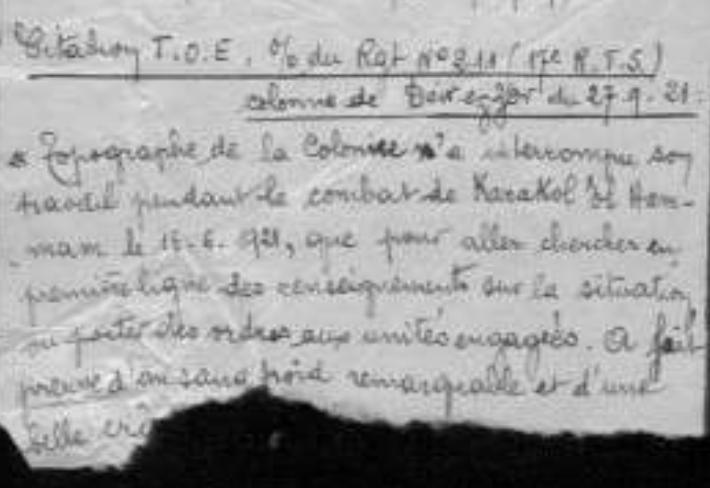 Citation T.O.E. % du Rgt Nº 211 (17e R.T.S.)
colonne de Deir ez Zor du 27.9.21.
" Topographe de la Colonne n'a interrompu son
travail pendant le combat de Karakol el Ham-
mam le 15.6.921, que pour aller chercher en
première ligne des renseignements sur la situation
ou porter des ordres aux unités engagées. A fait
preuve d'un sang froid remarquable et d'une
belle